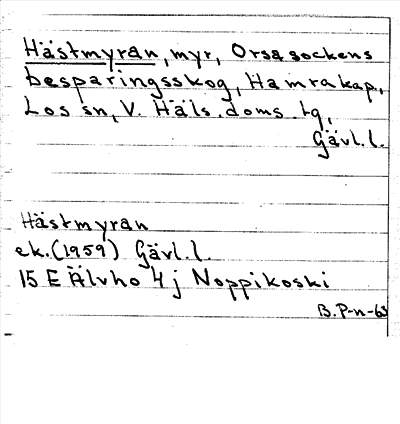 Hästmyran, myr, Orsa sockens
besparingsskog, Hamra kap.,
Los sn, V. Häls. doms. tg,
Gävl. l.
Hästmyran
ek. (1959) Gävl. l.
15 E Älvho 4 j Noppikoski
B. P-n-63